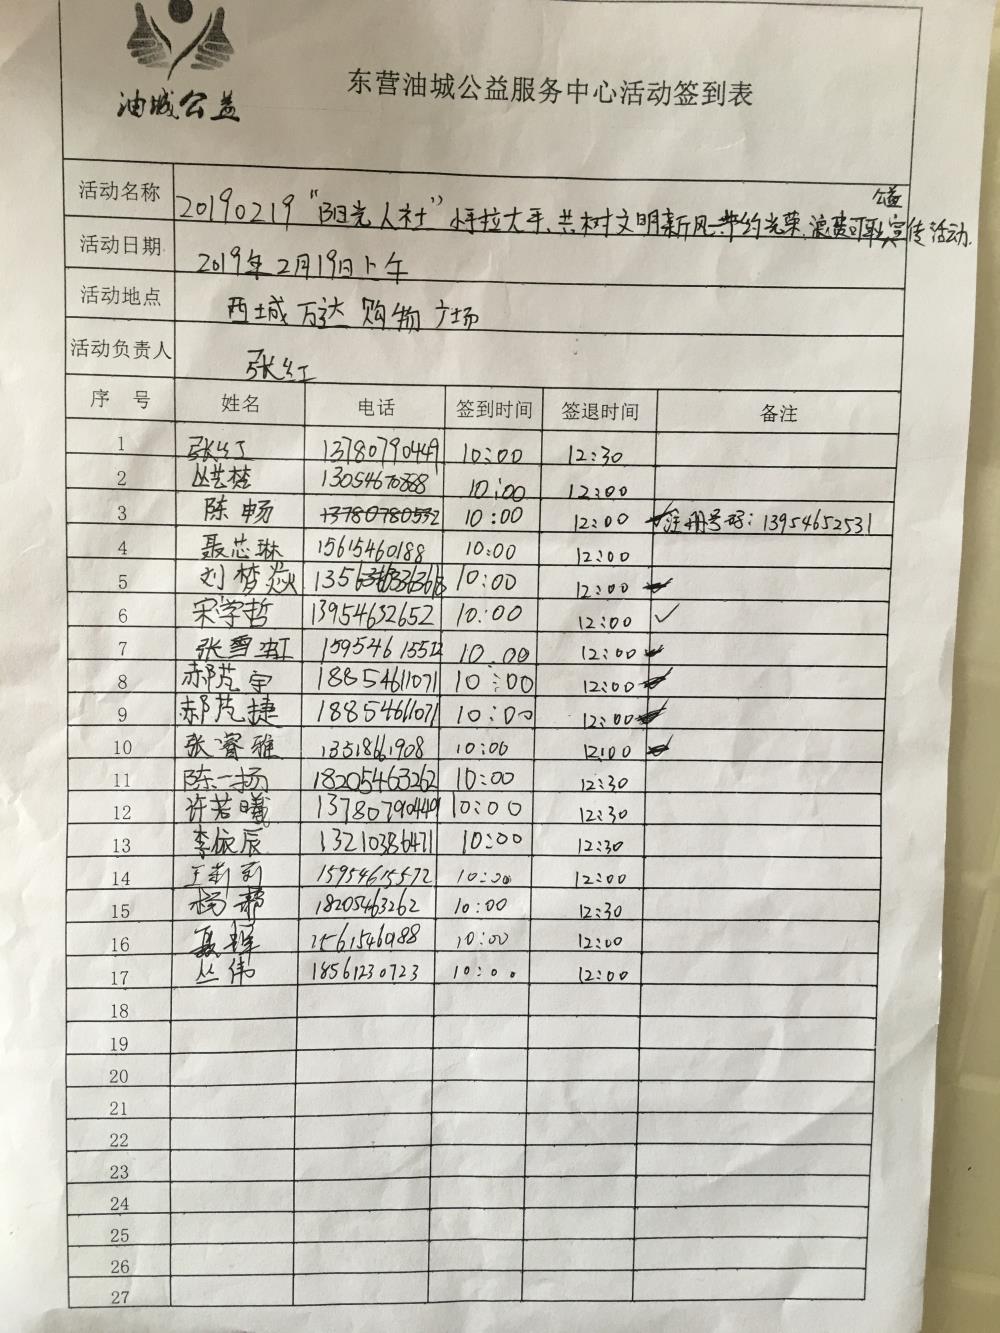 油城公益
东营油城公益服务中心活动签到表
活动名称 20190219 "阳光人社" 小手拉大手、共树文明新风 节约光荣、浪费可耻 公益宣传活动.
活动日期 2019年2月19日上午
活动地点 西城万达购物广场
活动负责人 张红
序 号 姓名 电话 签到时间 签退时间 备注
1 张红 13780790449 10:00 12:30
2 丛芸梵 10:00 12:00
3 陈畅 13780780532 10:00 12:00 注册号码: 13954652531
4 聂芯琳 15615460188 10:00 12:00
5 刘梦焱 10:00 12:00
6 宋学哲 13954632652 10:00 12:00 ✓
7 张雪虹 10:00 12:00
8 郝芃宇 18854611071 10:00 12:00
9 郝芃捷 18854611071 10:00 12:00
10 张睿雅 10:00 12:00
11 陈一扬 18205463262 10:00 12:30
12 许若曦 13780790449 10:00 12:30
13 李依辰 13210386471 10:00 12:30
14 王莉莉 15954615572 10:00 12:00
15 杨 18205463262 10:00 12:30
16 聂辉 10:00 12:00
17 丛伟 18561230723 10:00 12:00
18
19
20
21
22
23
24
25
26
27